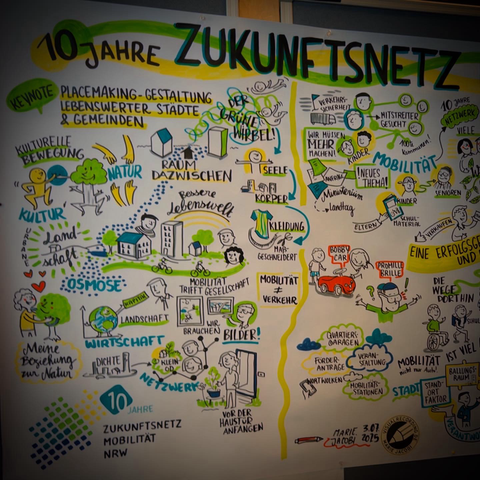 10 JAHRE ZUKUNFTSNETZ
KEYNOTE
PLACEMAKING-GESTALTUNG
LEBENSWERTER STÄDTE
& GEMEINDEN
DER
GRÜNE
WIRBEL!
KULTURELLE
BEWEGUNG
NATUR
KULTUR
RAUM
DAZWISCHEN
SEELE
KÖRPER
KLEIDUNG
MAß-
GESCHNEIDERT
Bessere
Lebenswelt
URBANE
Land
schaft
OSMOSE
MOBILITÄT
TRIFFT GESELLSCHAFT
MOBILITÄT
≠
VERKEHR
LANDSCHAFT
WIRTSCHAFT
WIR
BRAUCHEN
BILDER!
Meine
Beziehung
zur Natur
DICHTE
KLEINOD
NETZWERK
VOR DER
HAUSTÜR
ANFANGEN
10 JAHRE
ZUKUNFTSNETZ
MOBILITÄT
NRW
VERKEHRS-
SICHERHEIT
MITSTREITER
GESUCHT
WIR MÜSSEN
MEHR
MACHEN!
KINDER
100%
MOBILITÄT
NEUES
THEMA!
Ministerium
Landtag
KINDER
SENIOREN
ELTERN
SCHUL-
MATERIAL
10 JAHRE
NETZWERK
VIELE
VERKÄUFER
EINE ERFOLGSG
UND
BOBBY
CAR
PROMILLE
BRILLE
DIE
WEGE
DORTHIN
QUARTIERS-
GARAGEN
FÖRDER-
ANTRÄGE
VERAN-
STALTUNG
MOBILITÄTS-
STATIONEN
MOBILITÄT IST VIEL
nicht nur Auto!
STADT
STAND
ORT
FAKTOR
BALLUNGS-
RAUM
VERANTWORT
MARIE
JACOBI
3.07
2025